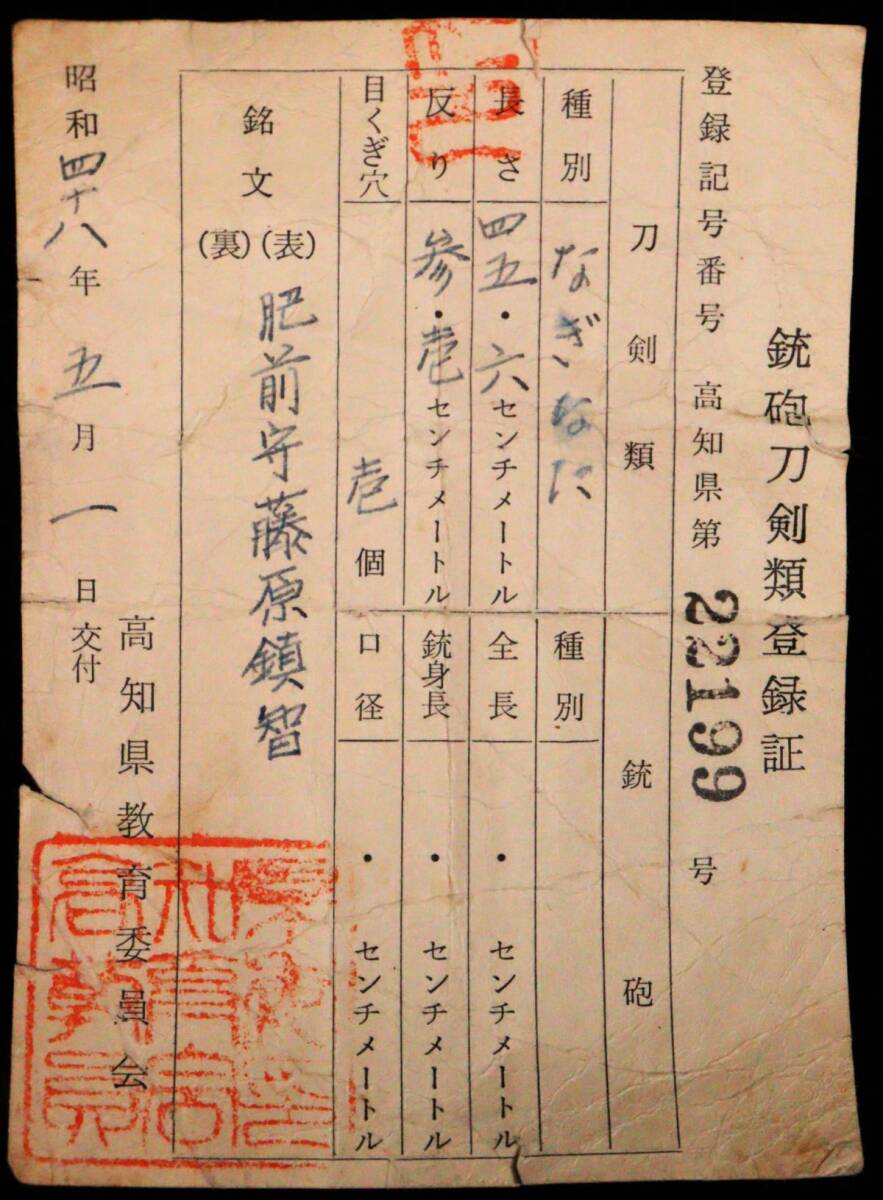 銃砲刀剣類登録証
登録記号番号 高知県第 22199 号
刀剣類
銃砲
種別 なぎなた
種別
長さ 四五・六センチメートル
全長 ・ センチメートル
反り 参・壱センチメートル
銃身長 ・ センチメートル
目くぎ穴 壱個
口径 ・ センチメートル
銘文 (表) 肥前守藤原鎮智
(裏)
高知県教育委員会
昭和四十八年五月一日交付